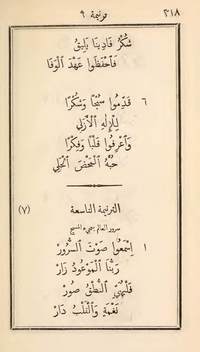 ٣١٨ ترنيمة ٦
شُكْرُ فَادِينَا يَلِيقُ
فَاحْفَظُوا عَهْدَ الْوَفَا
٦ قَدِّمُوا سُبْحًا وَشُكْرًا
لِلْإِلٰهِ الْأَزَلِي
وَاعْرِفُوا قَلْبًا وَفِكْرًا
حُبَّهُ الْمَحْضَ الْجَلِي
الترنيمة التاسعة (٧)
سرور العالم بمجيء المسيح
١ اِسْمَعُوا صَوْتَ السُّرُورْ
رَبُّنَا الْمَوْعُودُ زَارْ
نَغْمَةً وَالْقَلْبُ دَارْ